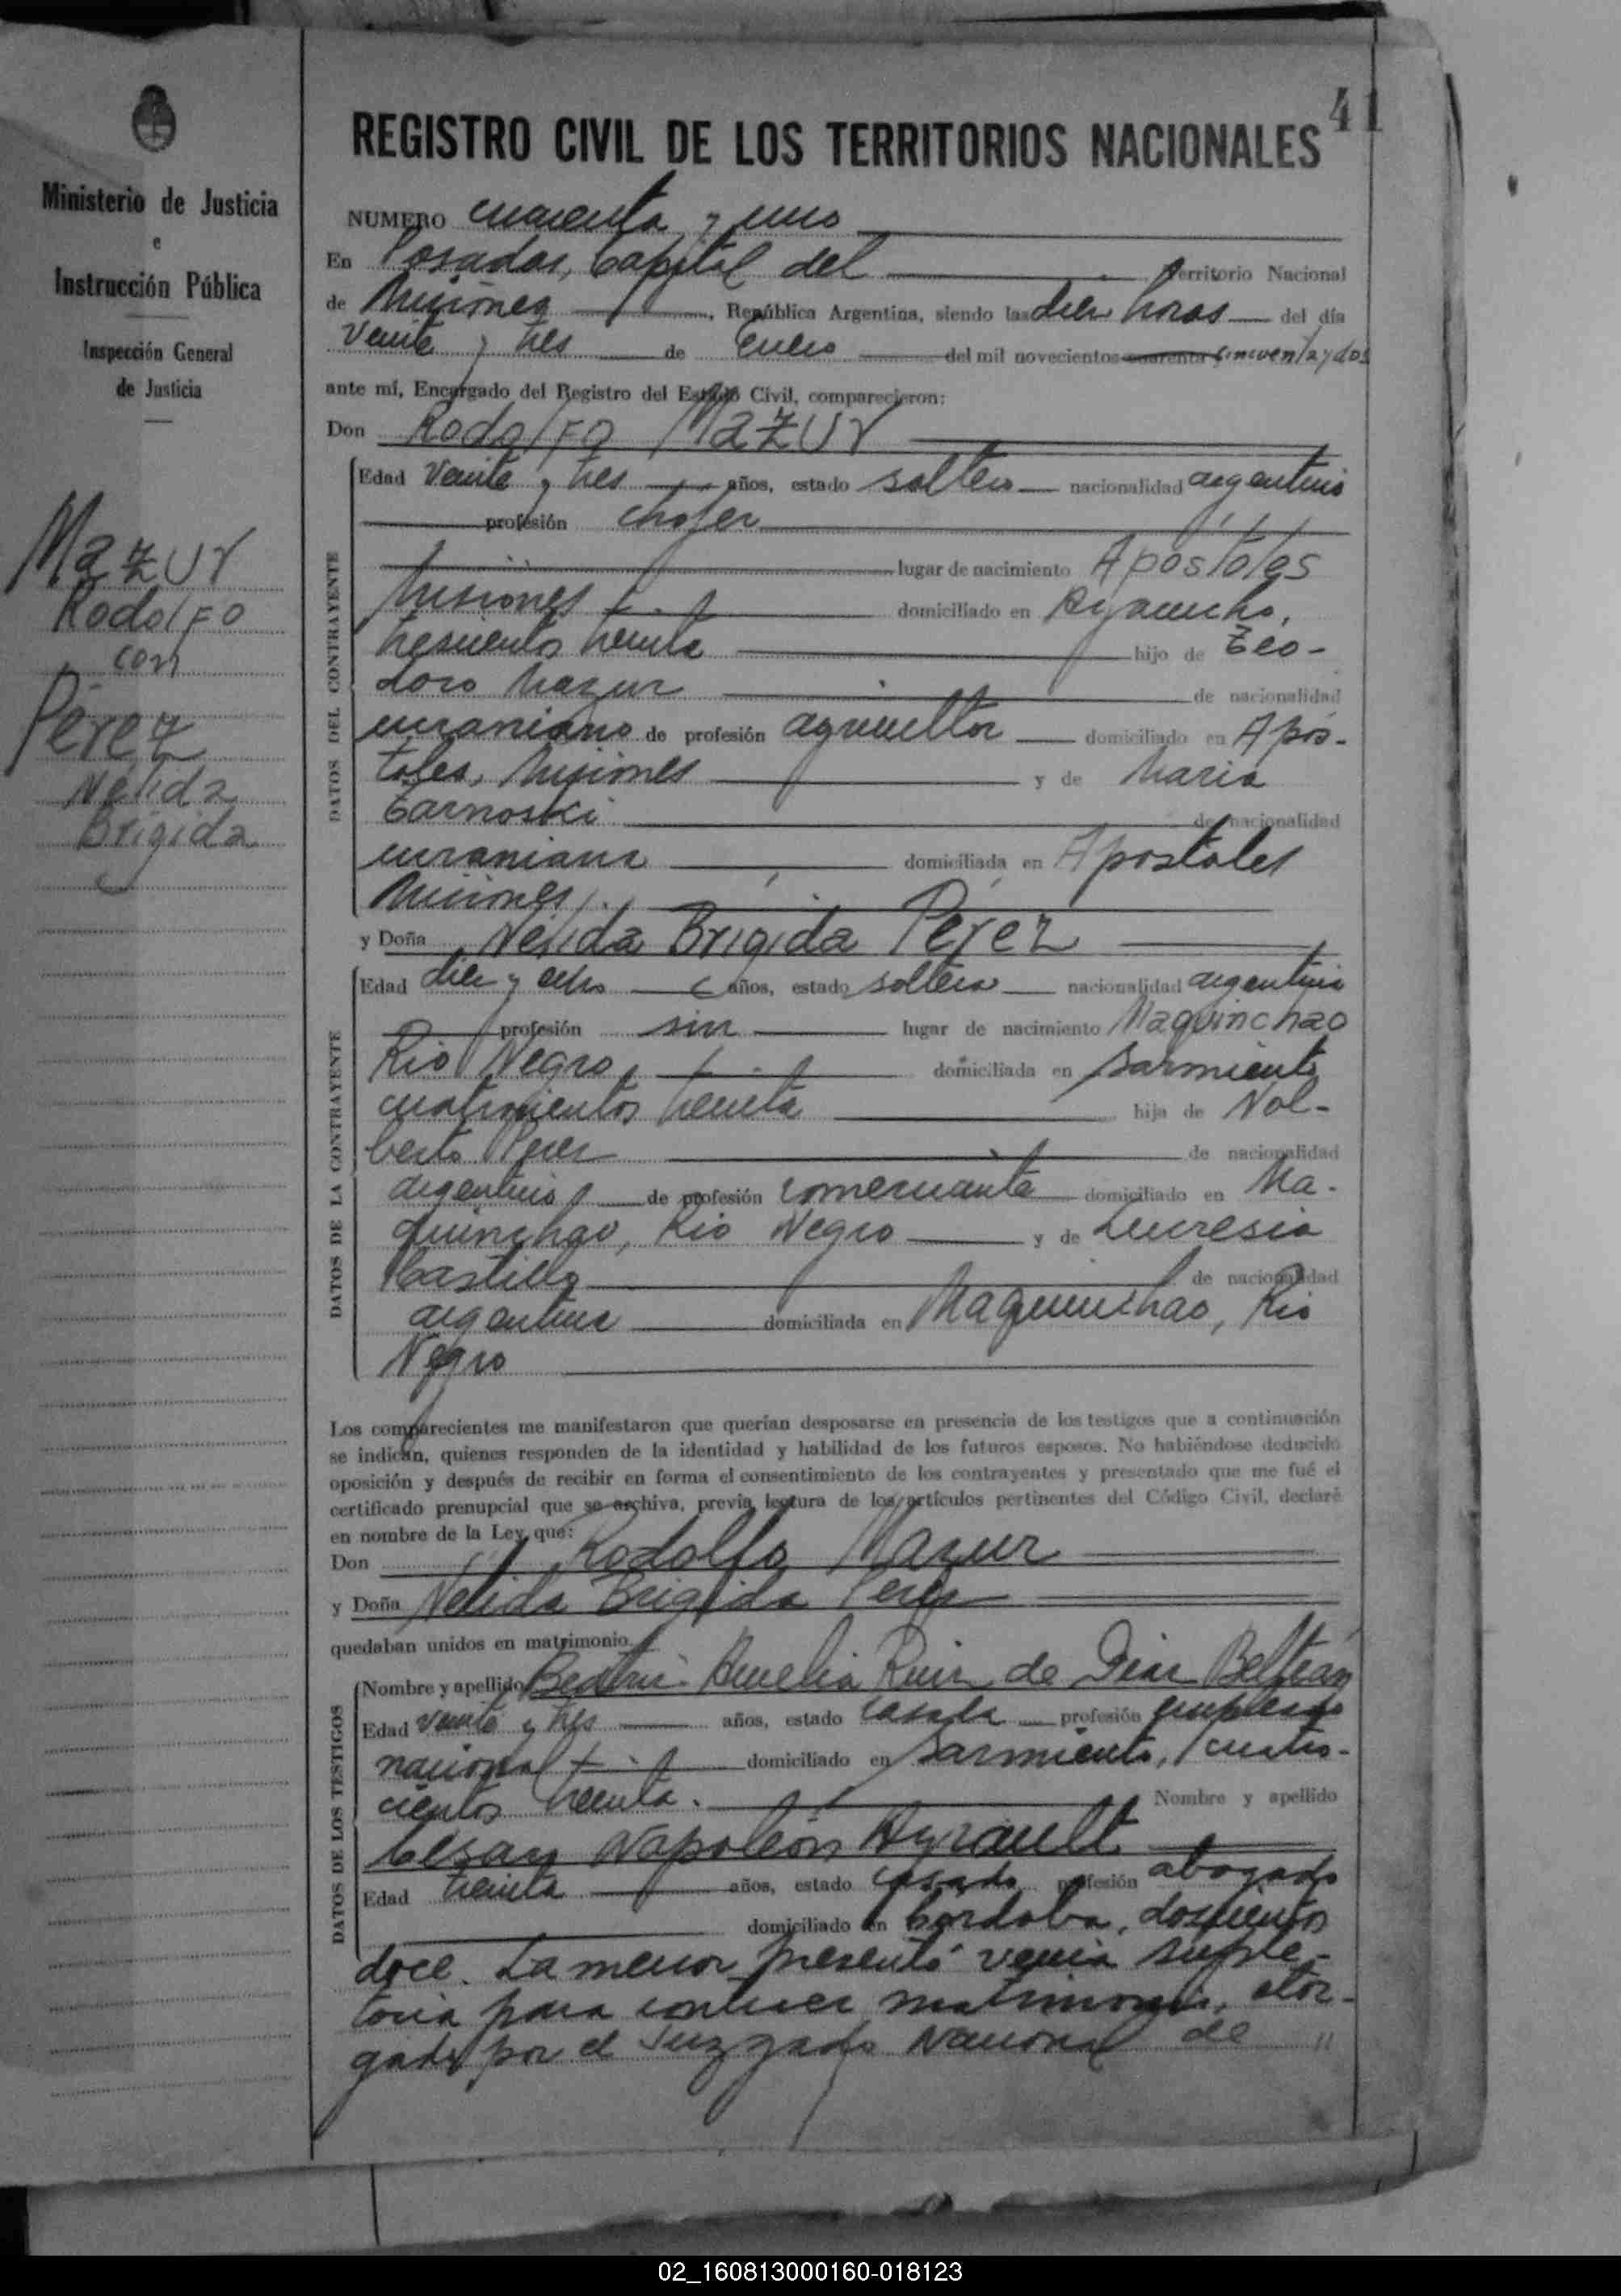 41
Ministerio de Justicia
e
Instrucción Pública
Inspección General
de Justicia
Mazur
Rodolfo
con
Pérez
Nélida
Brígida
REGISTRO CIVIL DE LOS TERRITORIOS NACIONALES
NUMERO cuarenta y uno
En Posadas, Capital del Territorio Nacional
de Misiones, República Argentina, siendo las diez horas del día
veinte y tres de Enero del mil novecientos cuarenta cincuenta y dos
ante mí, Encargado del Registro del Estado Civil, comparecieron:
Don Rodolfo Mazur
DATOS DEL CONTRAYENTE
Edad veinte y tres años, estado soltero nacionalidad argentino
profesión chofer
lugar de nacimiento Apóstoles
Misiones domiciliado en Ayacucho,
trescientos treinta hijo de Teo-
doro Mazur de nacionalidad
ucraniano de profesión agricultor domiciliado en Após-
toles, Misiones y de María
Carnoski de nacionalidad
ucraniana domiciliada en Apóstoles
Misiones
y Doña Nélida Brígida Pérez
DATOS DE LA CONTRAYENTE
Edad diez y ocho años, estado soltera nacionalidad argentina
profesión sin lugar de nacimiento Maquinchao
Río Negro, domiciliada en Sarmiento
cuatrocientos treinta hija de Nol-
berto Pérez de nacionalidad
argentino de profesión comerciante domiciliado en Ma-
quinchao, Río Negro y de Lucresia
Castillo de nacionalidad
argentina domiciliada en Maquinchao, Río
Negro
Los comparecientes me manifestaron que querían desposarse en presencia de los testigos que a continuación
se indican, quienes responden de la identidad y habilidad de los futuros esposos. No habiéndose deducido
oposición y después de recibir en forma el consentimiento de los contrayentes y presentado que me fué el
certificado prenupcial que se archiva, previa lectura de los artículos pertinentes del Código Civil, declaré
en nombre de la Ley que:
Don Rodolfo Mazur
y Doña Nélida Brígida Pérez
quedaban unidos en matrimonio.
DATOS DE LOS TESTIGOS
Nombre y apellido Beatriz Amelia Ruiz de Diaz Beltrán
Edad veinte y tres años, estado casada profesión empleada
nacional domiciliado en Sarmiento, cuatro-
cientos treinta. Nombre y apellido
César Napoleón Ayrault
Edad treinta años, estado casado profesión abogado
domiciliado en Córdoba, doscientos
doce. La menor presentó venia suple-
toria para contraer matrimonio, otor-
gada por el Juzgado Nacional de "
02_160813000160-018123